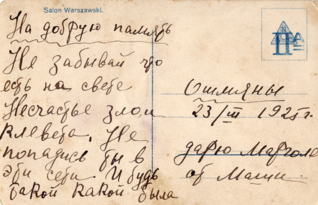 Salon Warszawski.
На добрую память
Не забывай что
есть на свете
Несчастье злои
клевета. Не
попадись ты в
эти сети. И будь
такой какой была
Ошмяны
23/III 1925 г.
дарю
от Маши